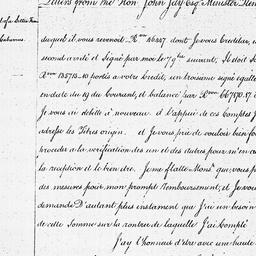 Letters from the Hon. John Jay Esq. Minister Plen
duquel il vous revenoit. Rxx 46247 dont Je vous Crediter, un
second arrêté et Signé par moi le 7 9bre suivant, Il doit S
Rxx 135713..10 portés a votre credit, un troisieme signé egalle
en date du 19 du Courant, et balancé par Rxx 667570.37
Je vous ai debité à nouveau. à L'appui de ces comptes J
adresse les Titres origin. et Je vous prie de vouloir bien fai
proceder a la verification des un et des autres pour m'en ca
la reception et le bien être. Je me flatte Monsr. que vous pr
des mesures pour mon prompt Remboursement, et Je vous
demande D'autant plus instament que J'ai un besoin
de cette Somme sur la rentrée de laquelle J'ai Compté
J'ay L'honneur d'etre avec une haute